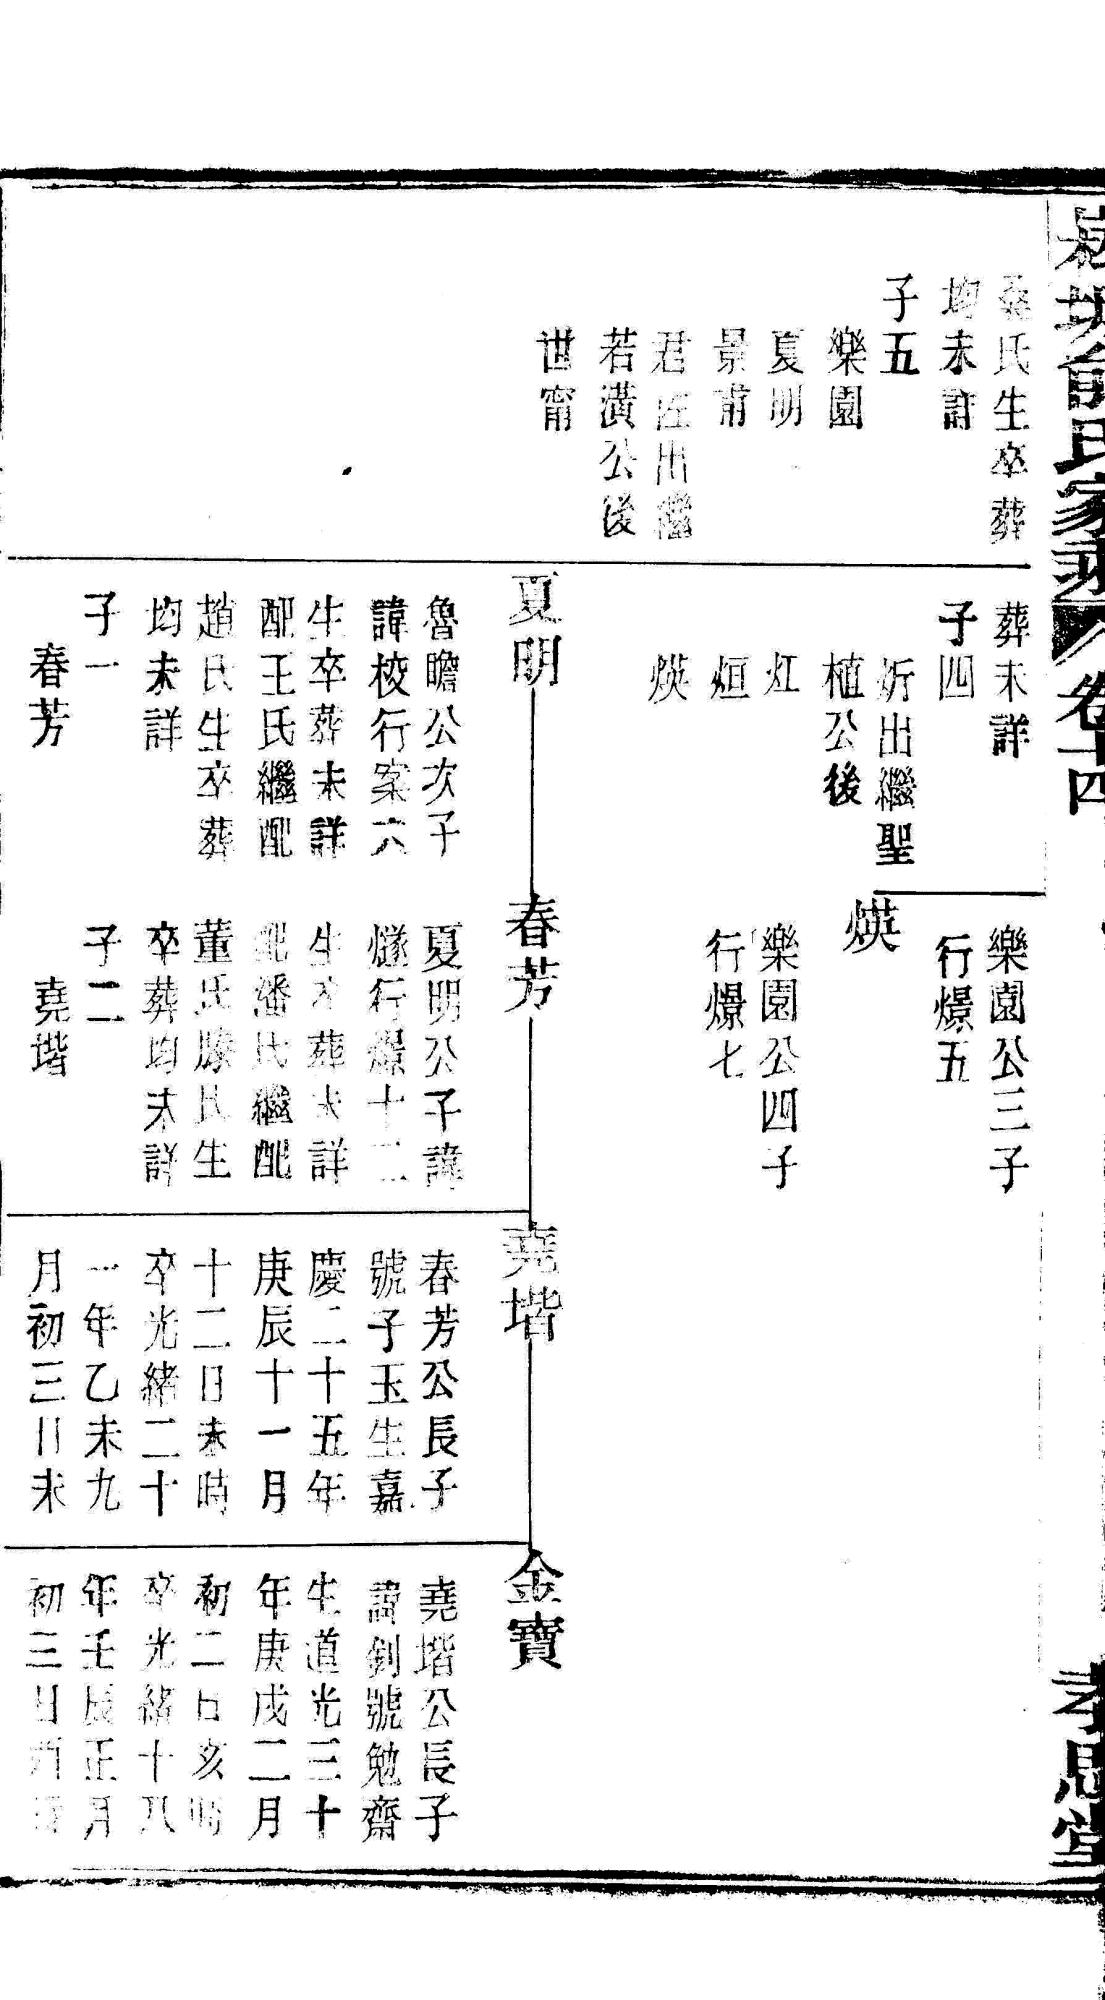 俞氏家乘 卷十四
孝思堂
桑氏生卒葬
均未詳
子五
樂園
夏明
景甫
君 出繼
若潢公後
世甯
葬未詳
子四
炘出繼聖
植公後
灴
烜
煐
樂園公三子
行爆五
煐
樂園公四子
行爆七
夏明
魯瞻公次子
諱校行案六
生卒葬未詳
配王氏繼配
趙氏生卒葬
均未詳
子一
春芳
春芳
夏明公子諱
燧行爆十二
生卒葬未詳
配潘氏繼配
董氏滕氏生
卒葬均未詳
子二
堯堦
堯堦
春芳公長子
號子玉生嘉
慶二十五年
庚辰十一月
十二日未時
卒光緒二十
一年乙未九
月初三日未
金寶
堯堦公長子
諱釗號勉齋
生道光三十
年庚戌二月
初二日亥時
卒光緒十八
年壬辰正月
初三日酉時